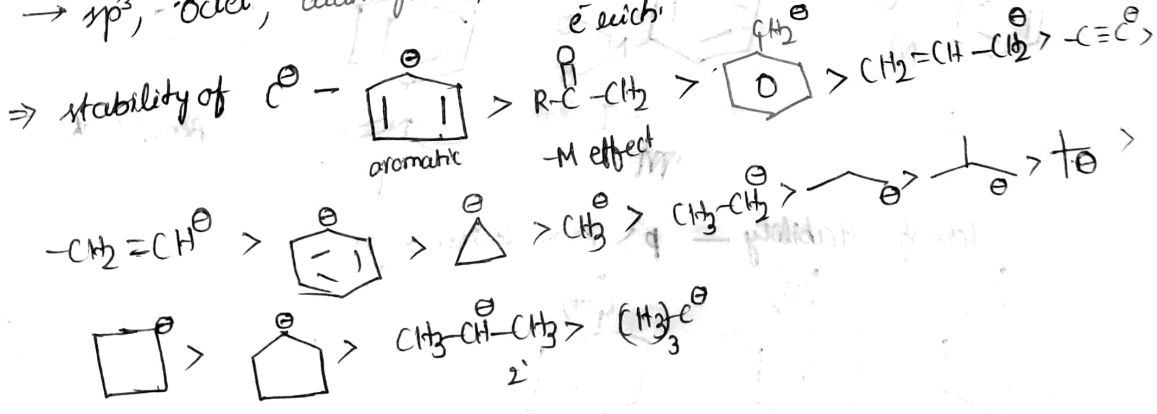 → sp³, octet,
ē rich
⇒ stability of C⊖ – ⊖ > R-C(=O)-CH2 > CH2⊖ > CH2=CH-CH2⊖ > -C≡C⊖ >
aromatic -M effect
-CH2=CH⊖ > ⊖ > ⊖ > CH3⊖ > CH3-CH2⊖ > ⊖ > ⊖ > ⊖ >
⊖ > ⊖ > CH3-CH⊖-CH3 > (CH3)3C⊖
2°